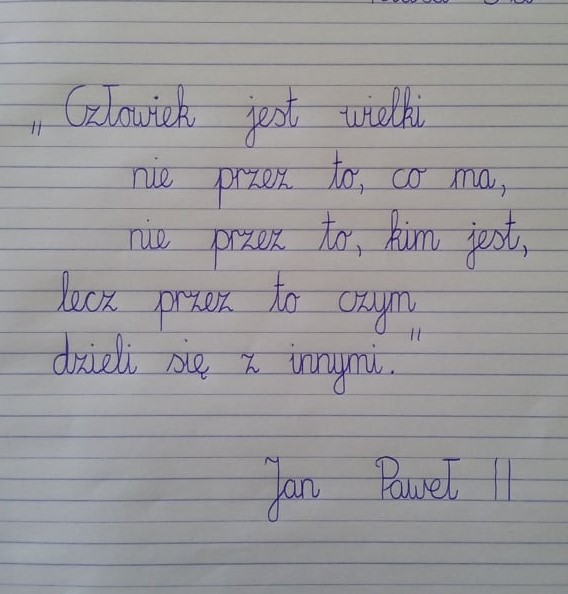 „Człowiek jest wielki
nie przez to, co ma,
nie przez to, kim jest,
lecz przez to czym
dzieli się z innymi."
Jan Paweł II